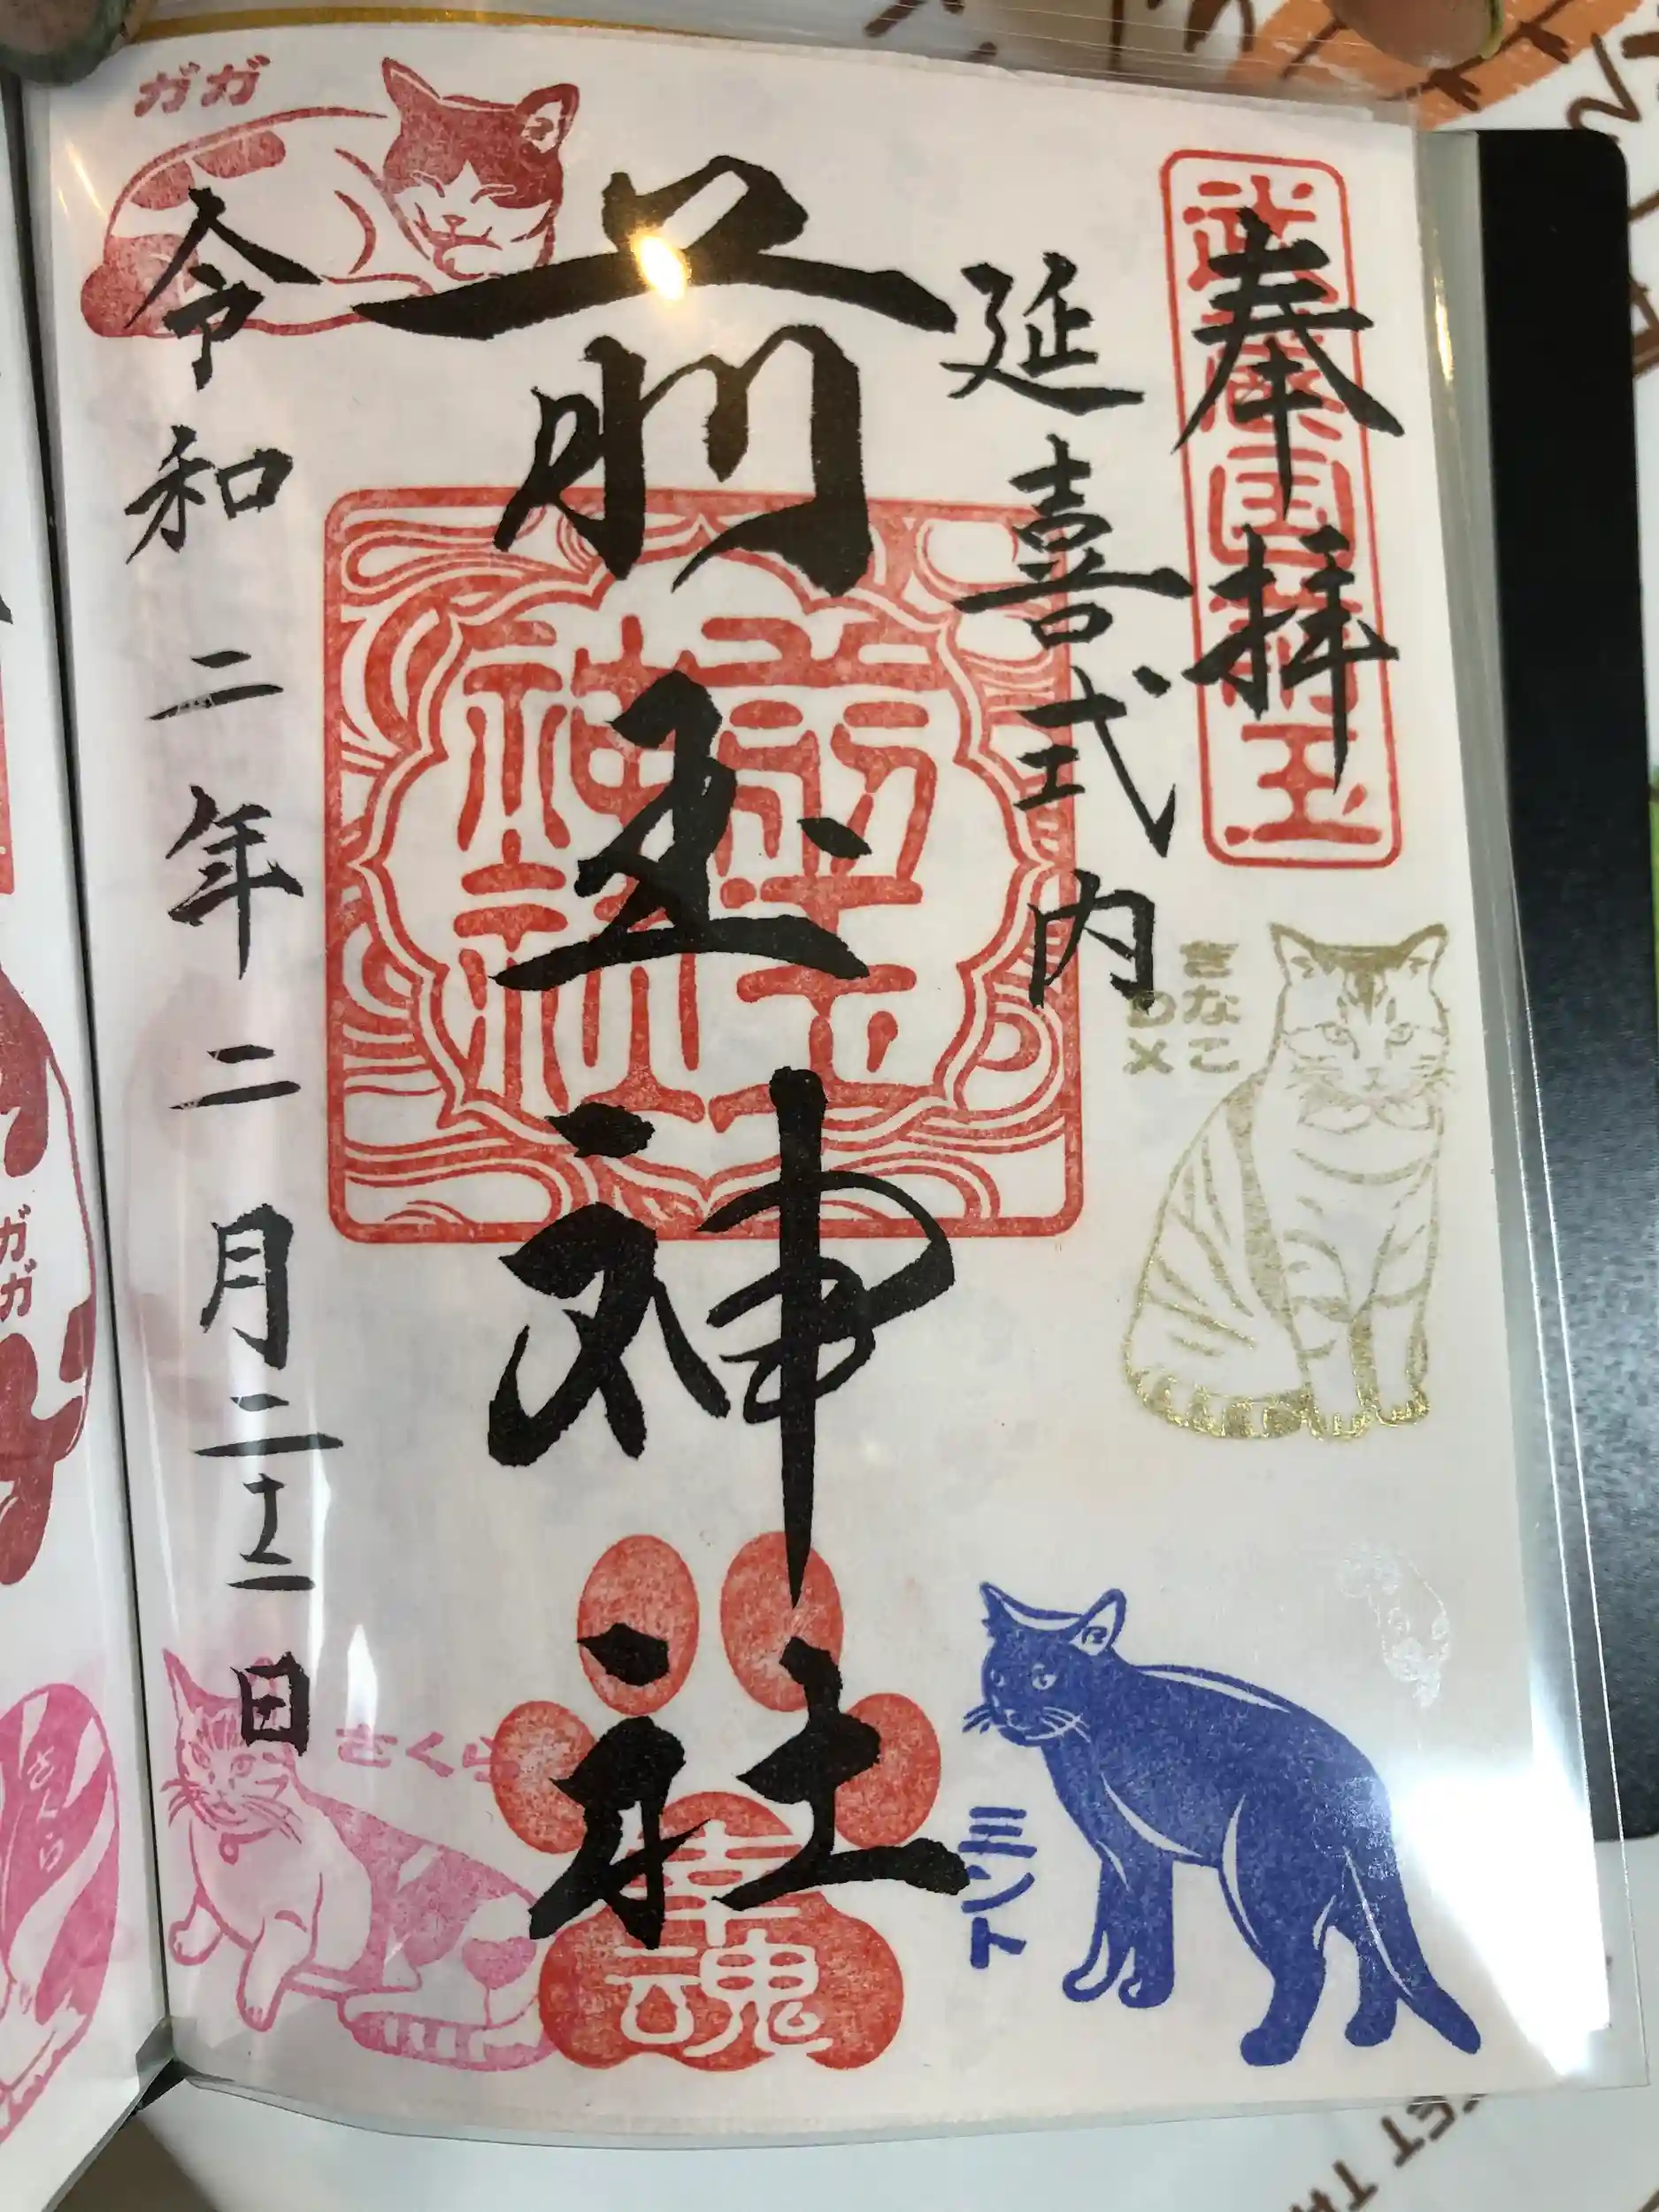 奉拝
武蔵国前玉
延喜式内
きなこ
DX
ミント
前玉神社
幸魂
ガガ
令和二年二月二十二日
さくら
ガガ
さくら